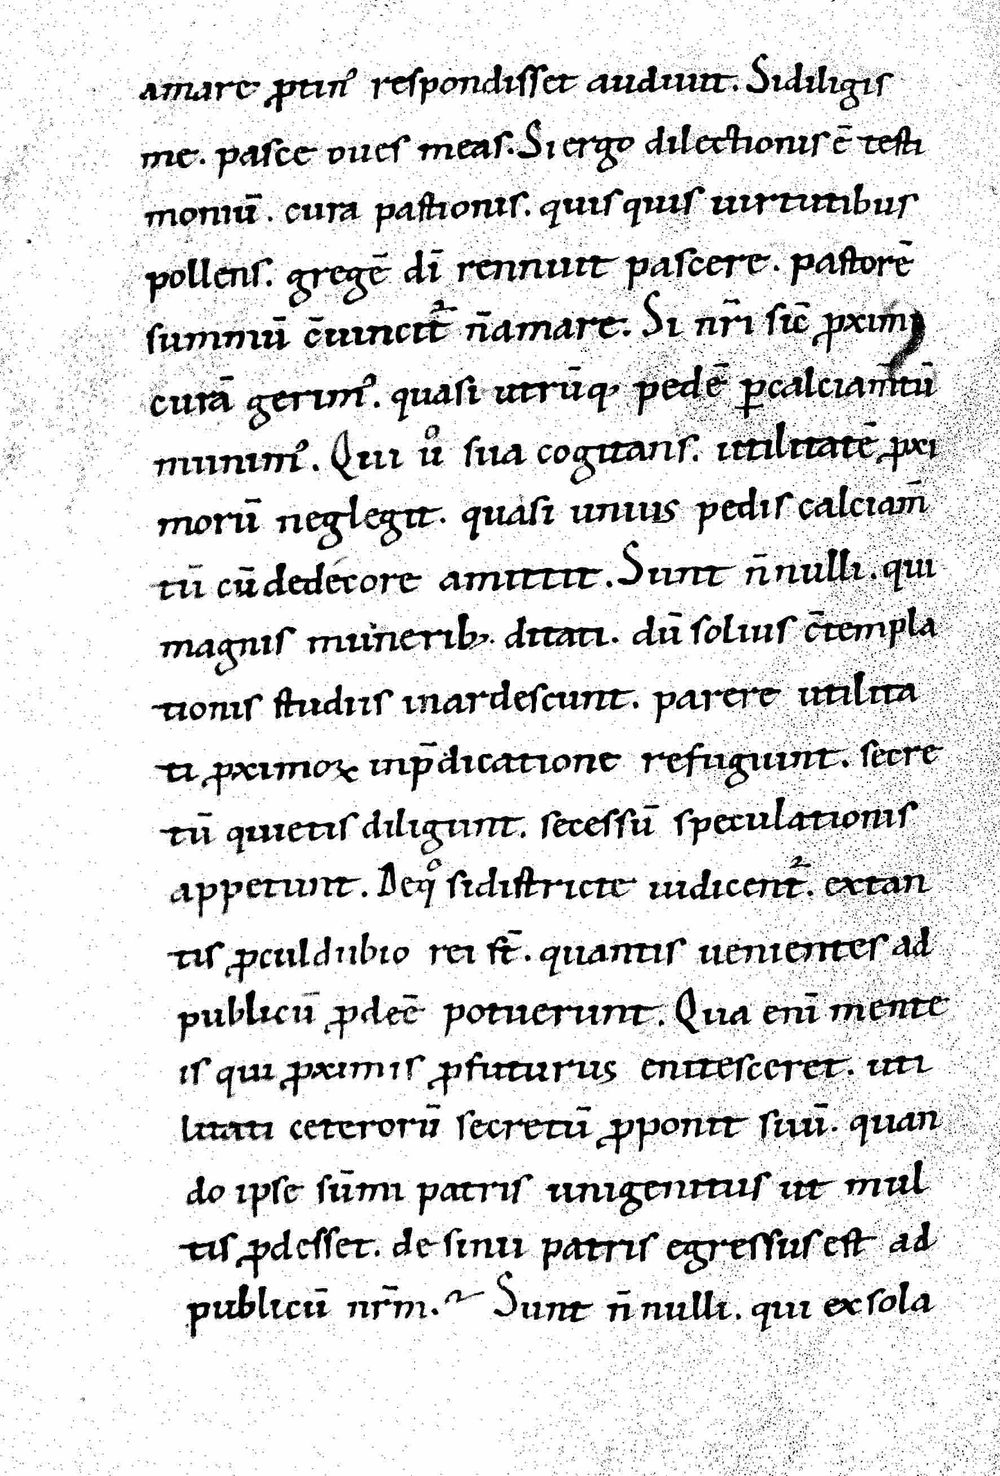 amare ꝓtin᷒ respondisset audiuit. Si diligis
me. pasce oues meas. Si ergo dilectionis ē testi
moniū. cura pastionis. quisquis uirtutibus
pollens. gregē dī rennuit pascere. pastorē
summū c̄uincit᷑ n̄ amare. Si nr̄i sic̄ ꝓximi
curā gerim᷒. quasi utrūq; pedē ꝑ calciam̄tū
munim᷒. Qui ů sua cogitans. utilitatē ꝓxi
morū neglegit. quasi unius pedis calciam̄
tū cū dedecore amittit. Sunt n̄nulli. qui
magnis munerib; ditati. dū solius c̄templa
tionis studiis inardescunt. parere utilita
ti ꝓximoꝝ in p̄dicatione refugiunt. secre
tū quietis diligunt. secessū speculationis
appetunt. De qͦ si districte iudicent᷑. ex tan
tis ꝓculdubio rei st̄. quantis uenientes ad
publicū ꝓdeē potuerunt. Qua eni̅ mente
is qui ꝓximis ꝓfuturus enitesceret. uti
litati ceterorū secretū ꝓponit suū. quan
do ipse sūmi patris unigenitus ut mul
tis ꝓdesset. de sinu patris egressus est ad
publicū nr̄m. Sunt n̄nulli. qui ex sola